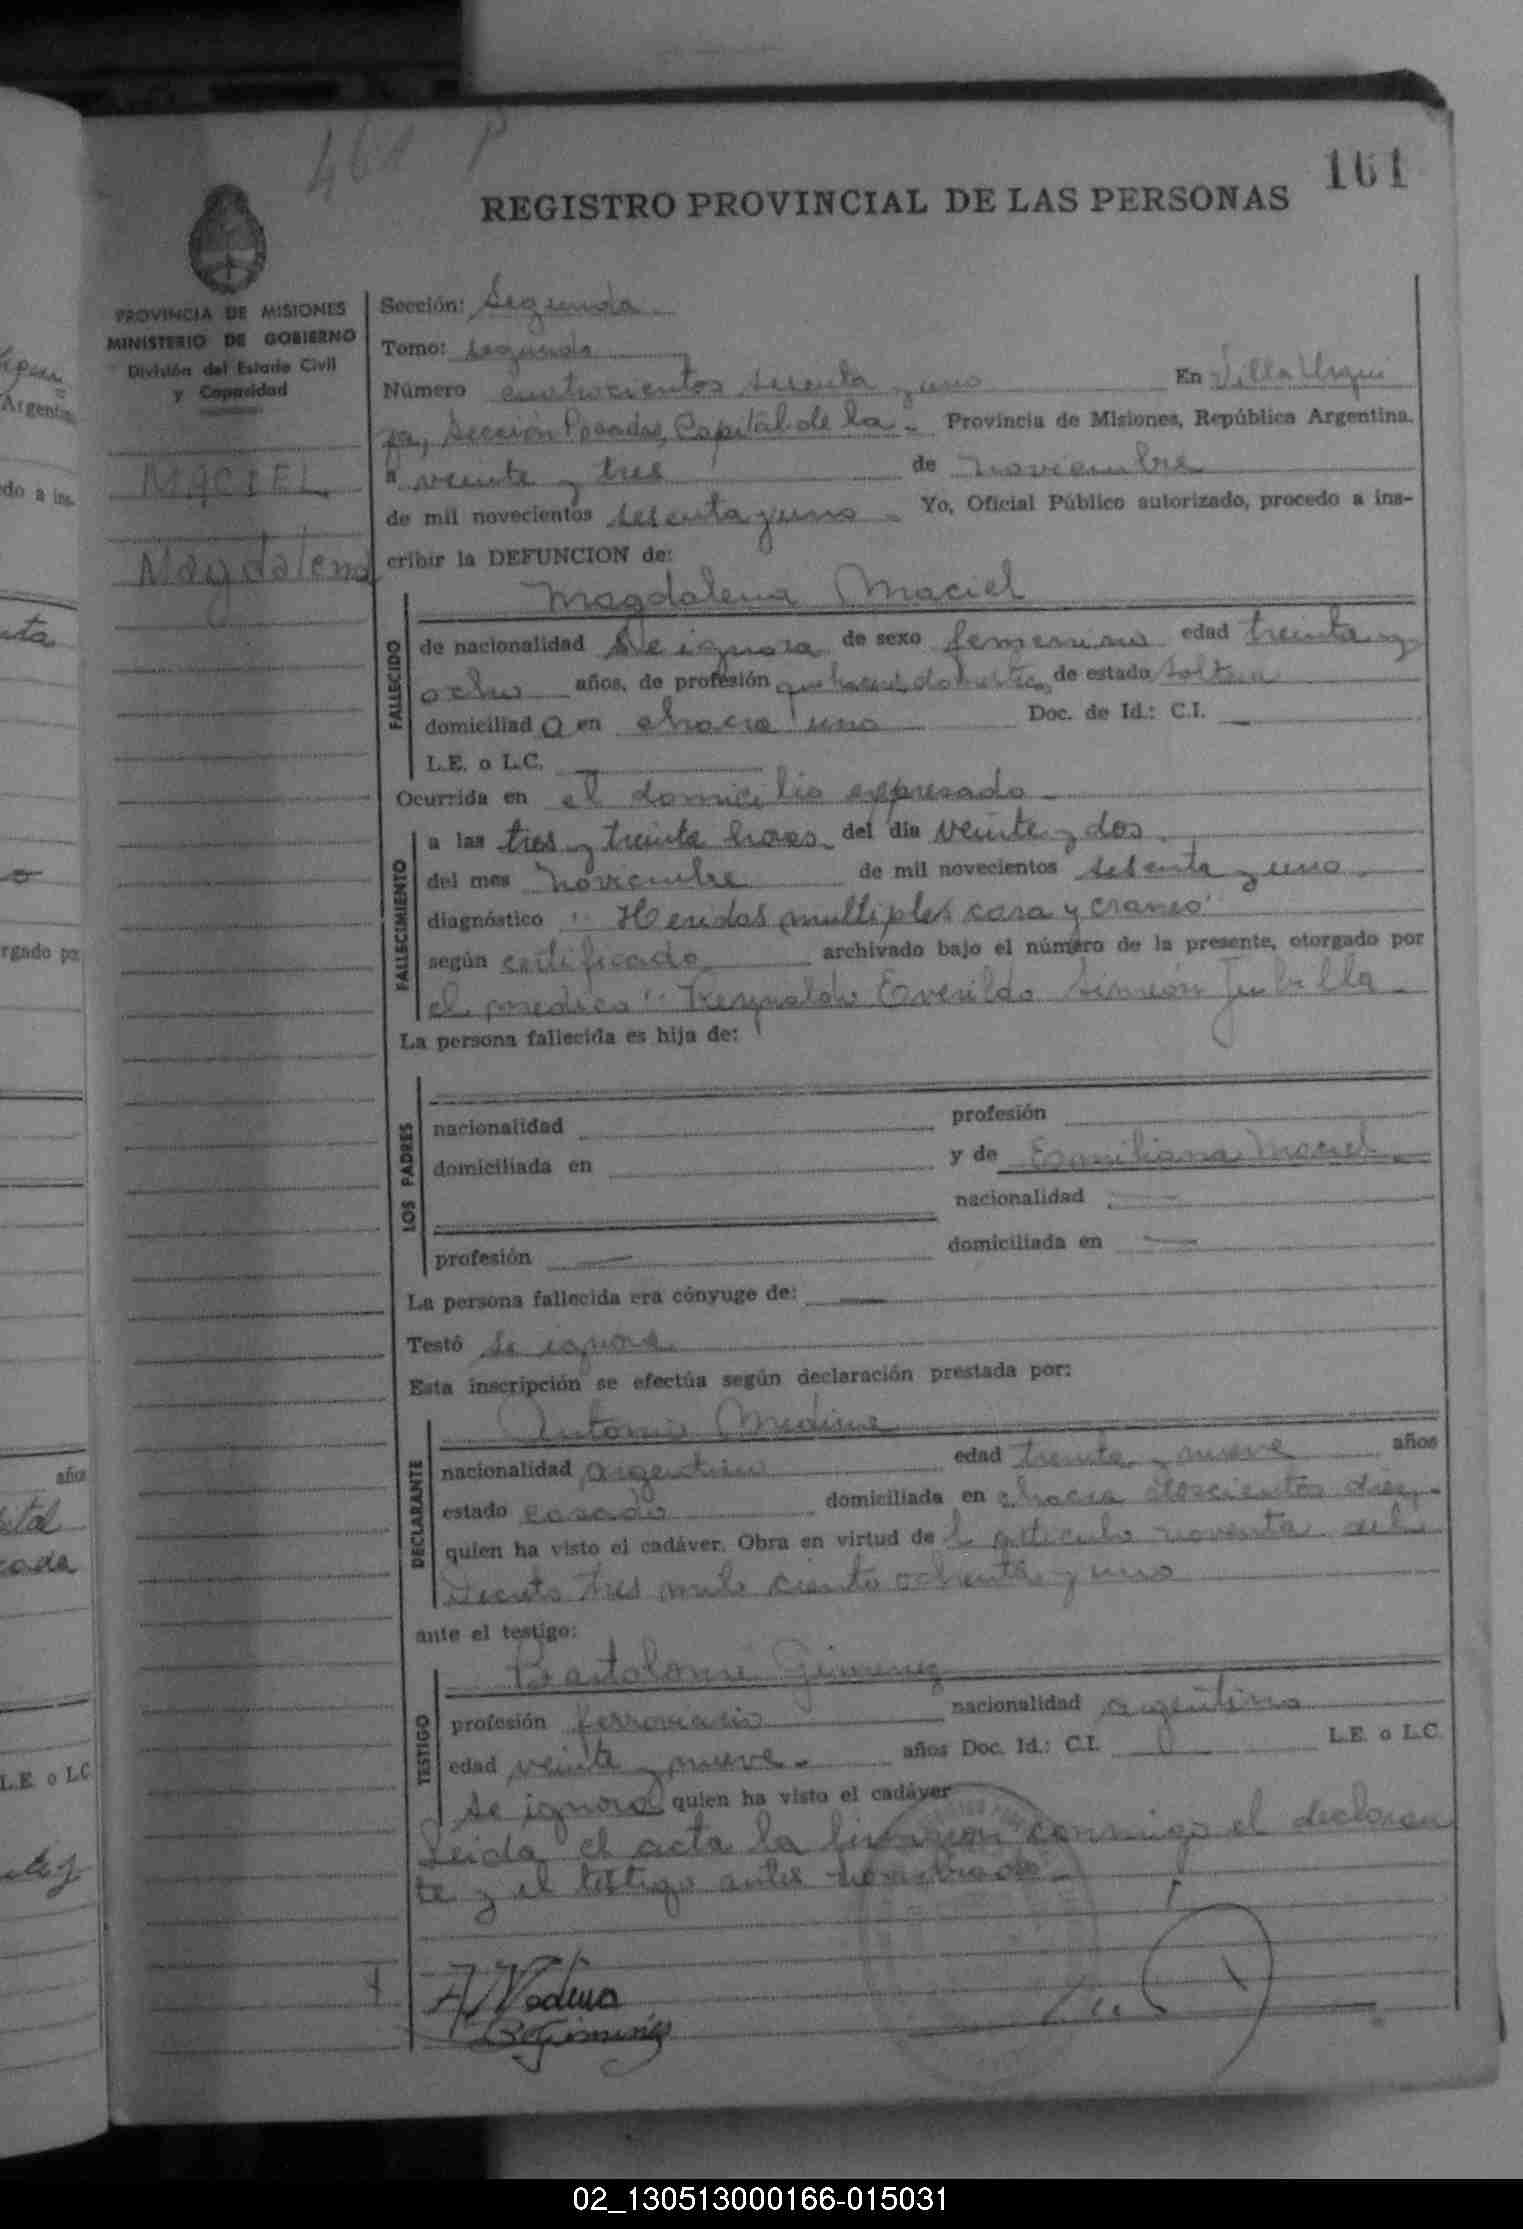 461 P
161
REGISTRO PROVINCIAL DE LAS PERSONAS
PROVINCIA DE MISIONES
MINISTERIO DE GOBIERNO
División del Estado Civil
y Capacidad
MACIEL
Magdalena
Sección: Segunda
Tomo: segundo
Número cuatrocientos sesenta y uno En Villa Urqui
za, Sección Posadas, Capital de la - Provincia de Misiones, República Argentina.
a veinte y tres de noviembre
de mil novecientos sesenta y uno - Yo, Oficial Público autorizado, procedo a ins-
cribir la DEFUNCION de:
Magdalena Maciel
FALLECIDO
de nacionalidad Se ignora de sexo femenino edad treinta y
ocho años, de profesión de estado soltera
domiciliad a en chacra uno Doc. de Id.: C.I. —
L.E. o L.C. —
Ocurrida en el domicilio expresado -
FALLECIMIENTO
a las tres y treinta horas del día veinte y dos.
del mes noviembre de mil novecientos sesenta y uno.
diagnóstico "Heridas multiples cara y craneo"
según certificado archivado bajo el número de la presente, otorgado por
el medico "Reynaldo Everildo Simeón
La persona fallecida es hija de:
LOS PADRES
nacionalidad profesión
domiciliada en y de Emiliana Maciel -
nacionalidad —
profesión — domiciliada en —
La persona fallecida era cónyuge de: —
Testó se ignora
Esta inscripción se efectúa según declaración prestada por:
Antonio Medina
DECLARANTE
nacionalidad argentino edad treinta y nueve años
estado casado domiciliada en chacra doscientos diez -
quien ha visto el cadáver. Obra en virtud de l articulo noventa del
Decreto tres mil ciento ochenta y uno
ante el testigo:
Bartolomé Gimenez
TESTIGO
profesión ferroviario nacionalidad argentino
edad veinte y nueve - años Doc. Id.: C.I. — L.E. o L.C.
se ignora quien ha visto el cadáver
Leida el acta la firmaron conmigo el declaran
te y el testigo antes nombrado -
A Medina
B Gimenez
Argentin
do a ins-
rgado po
años
L.E. o L.C
02_130513000166-015031